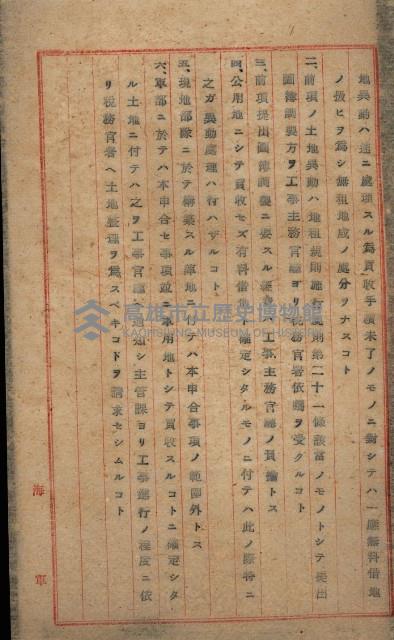 地異動ハ速ニ處理スル爲買收手續未了ノモノニ對シテハ一應無料借地
ノ扱ヒヲ爲シ無租地成ノ處分ヲナスコト
二、前項ノ土地異動ハ地租規則施行規則第二十一條該當ノモノトシテ提出
圖簿調製方ヲ工事主務官廳ヨリ税務官署依囑ヲ受クルコト
三、前項提出圖簿調製ニ要スル經費ハ工事主務官廳ノ負擔トス
四、公用地ニシテ買收セズ有料借地ト確定シタルモノニ付テハ此ノ際特ニ
之ガ異動處理ハ行ハザルコト
五、現地部隊ニ於テ構築スル陣地ニ付テハ本申合事項ノ範圍外トス
六、軍部ニ於テハ本申合セ事項竝ニ軍用地トシテ買收スルコトニ確定シタ
ル土地ニ付テハ之ヲ工事官廳ヘ通知シ主管課ヨリ工事進行ノ程度ニ依
リ税務官署ヘ土地整理ヲ爲スベキコトヲ請求セシムルコト
海軍
高雄市立歷史博物館
KAOHSIUNG MUSEUM OF HISTORY